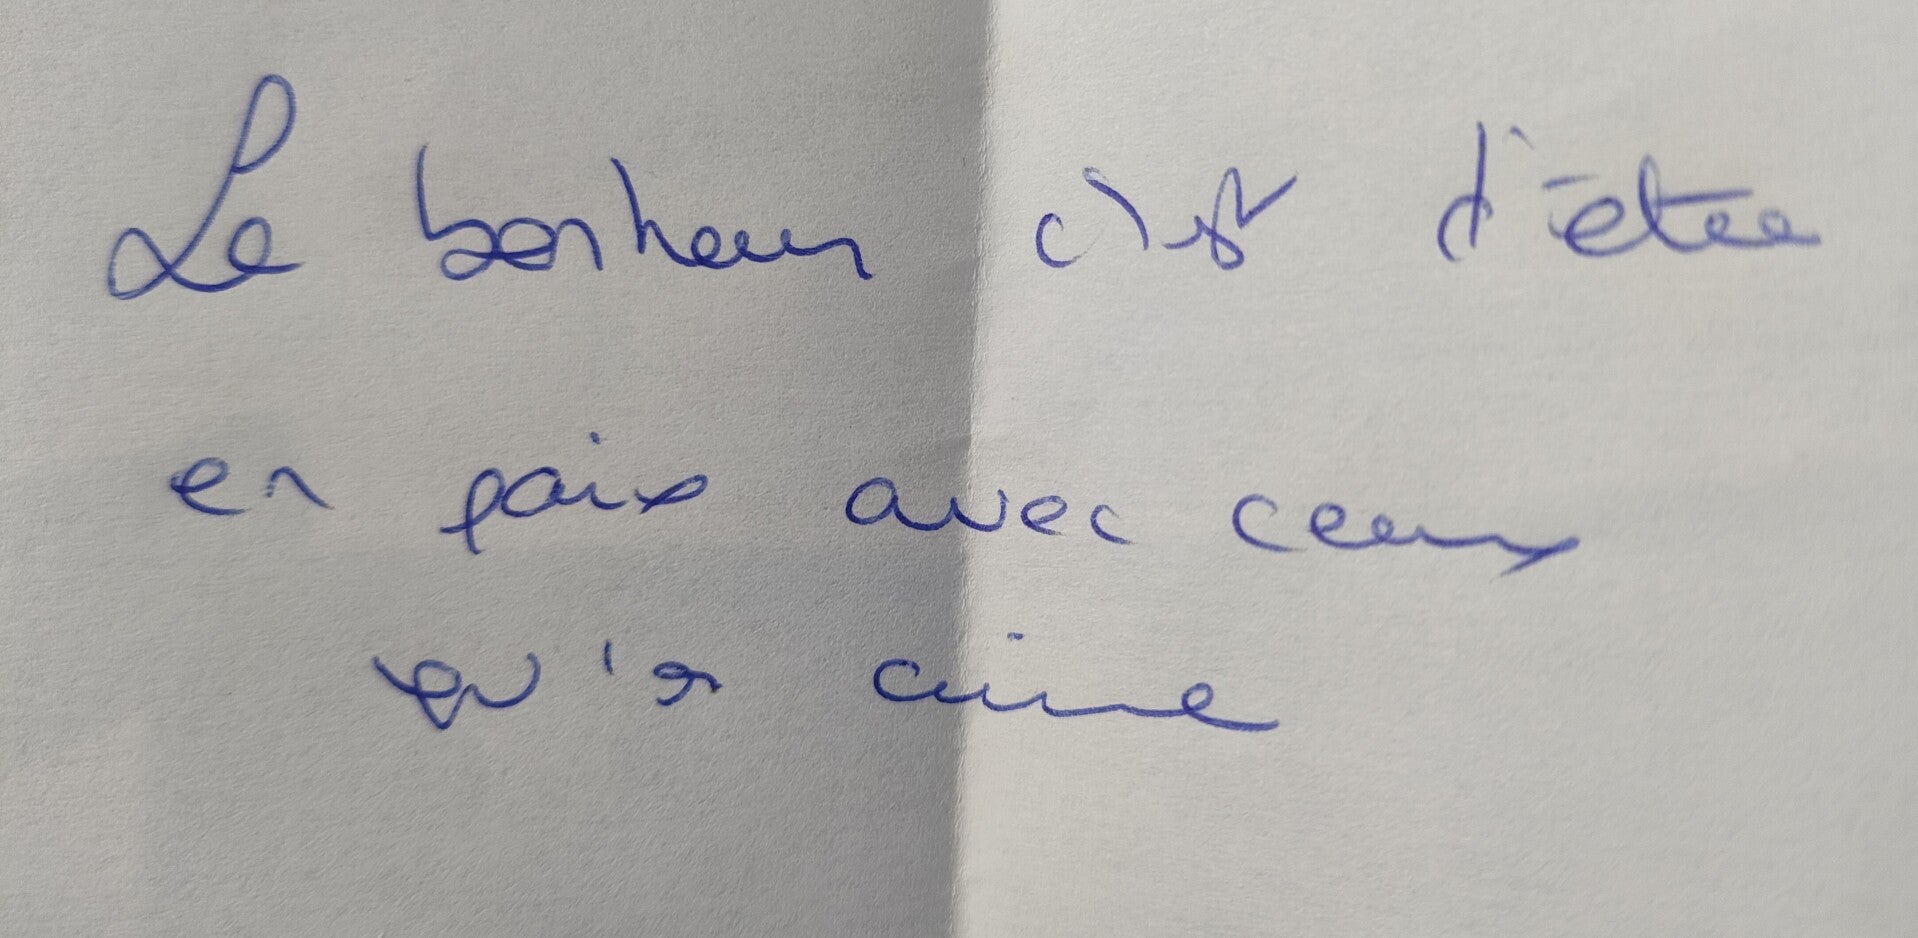 Le bonheur c'est d'être
en paix avec ceux
qu'on aime